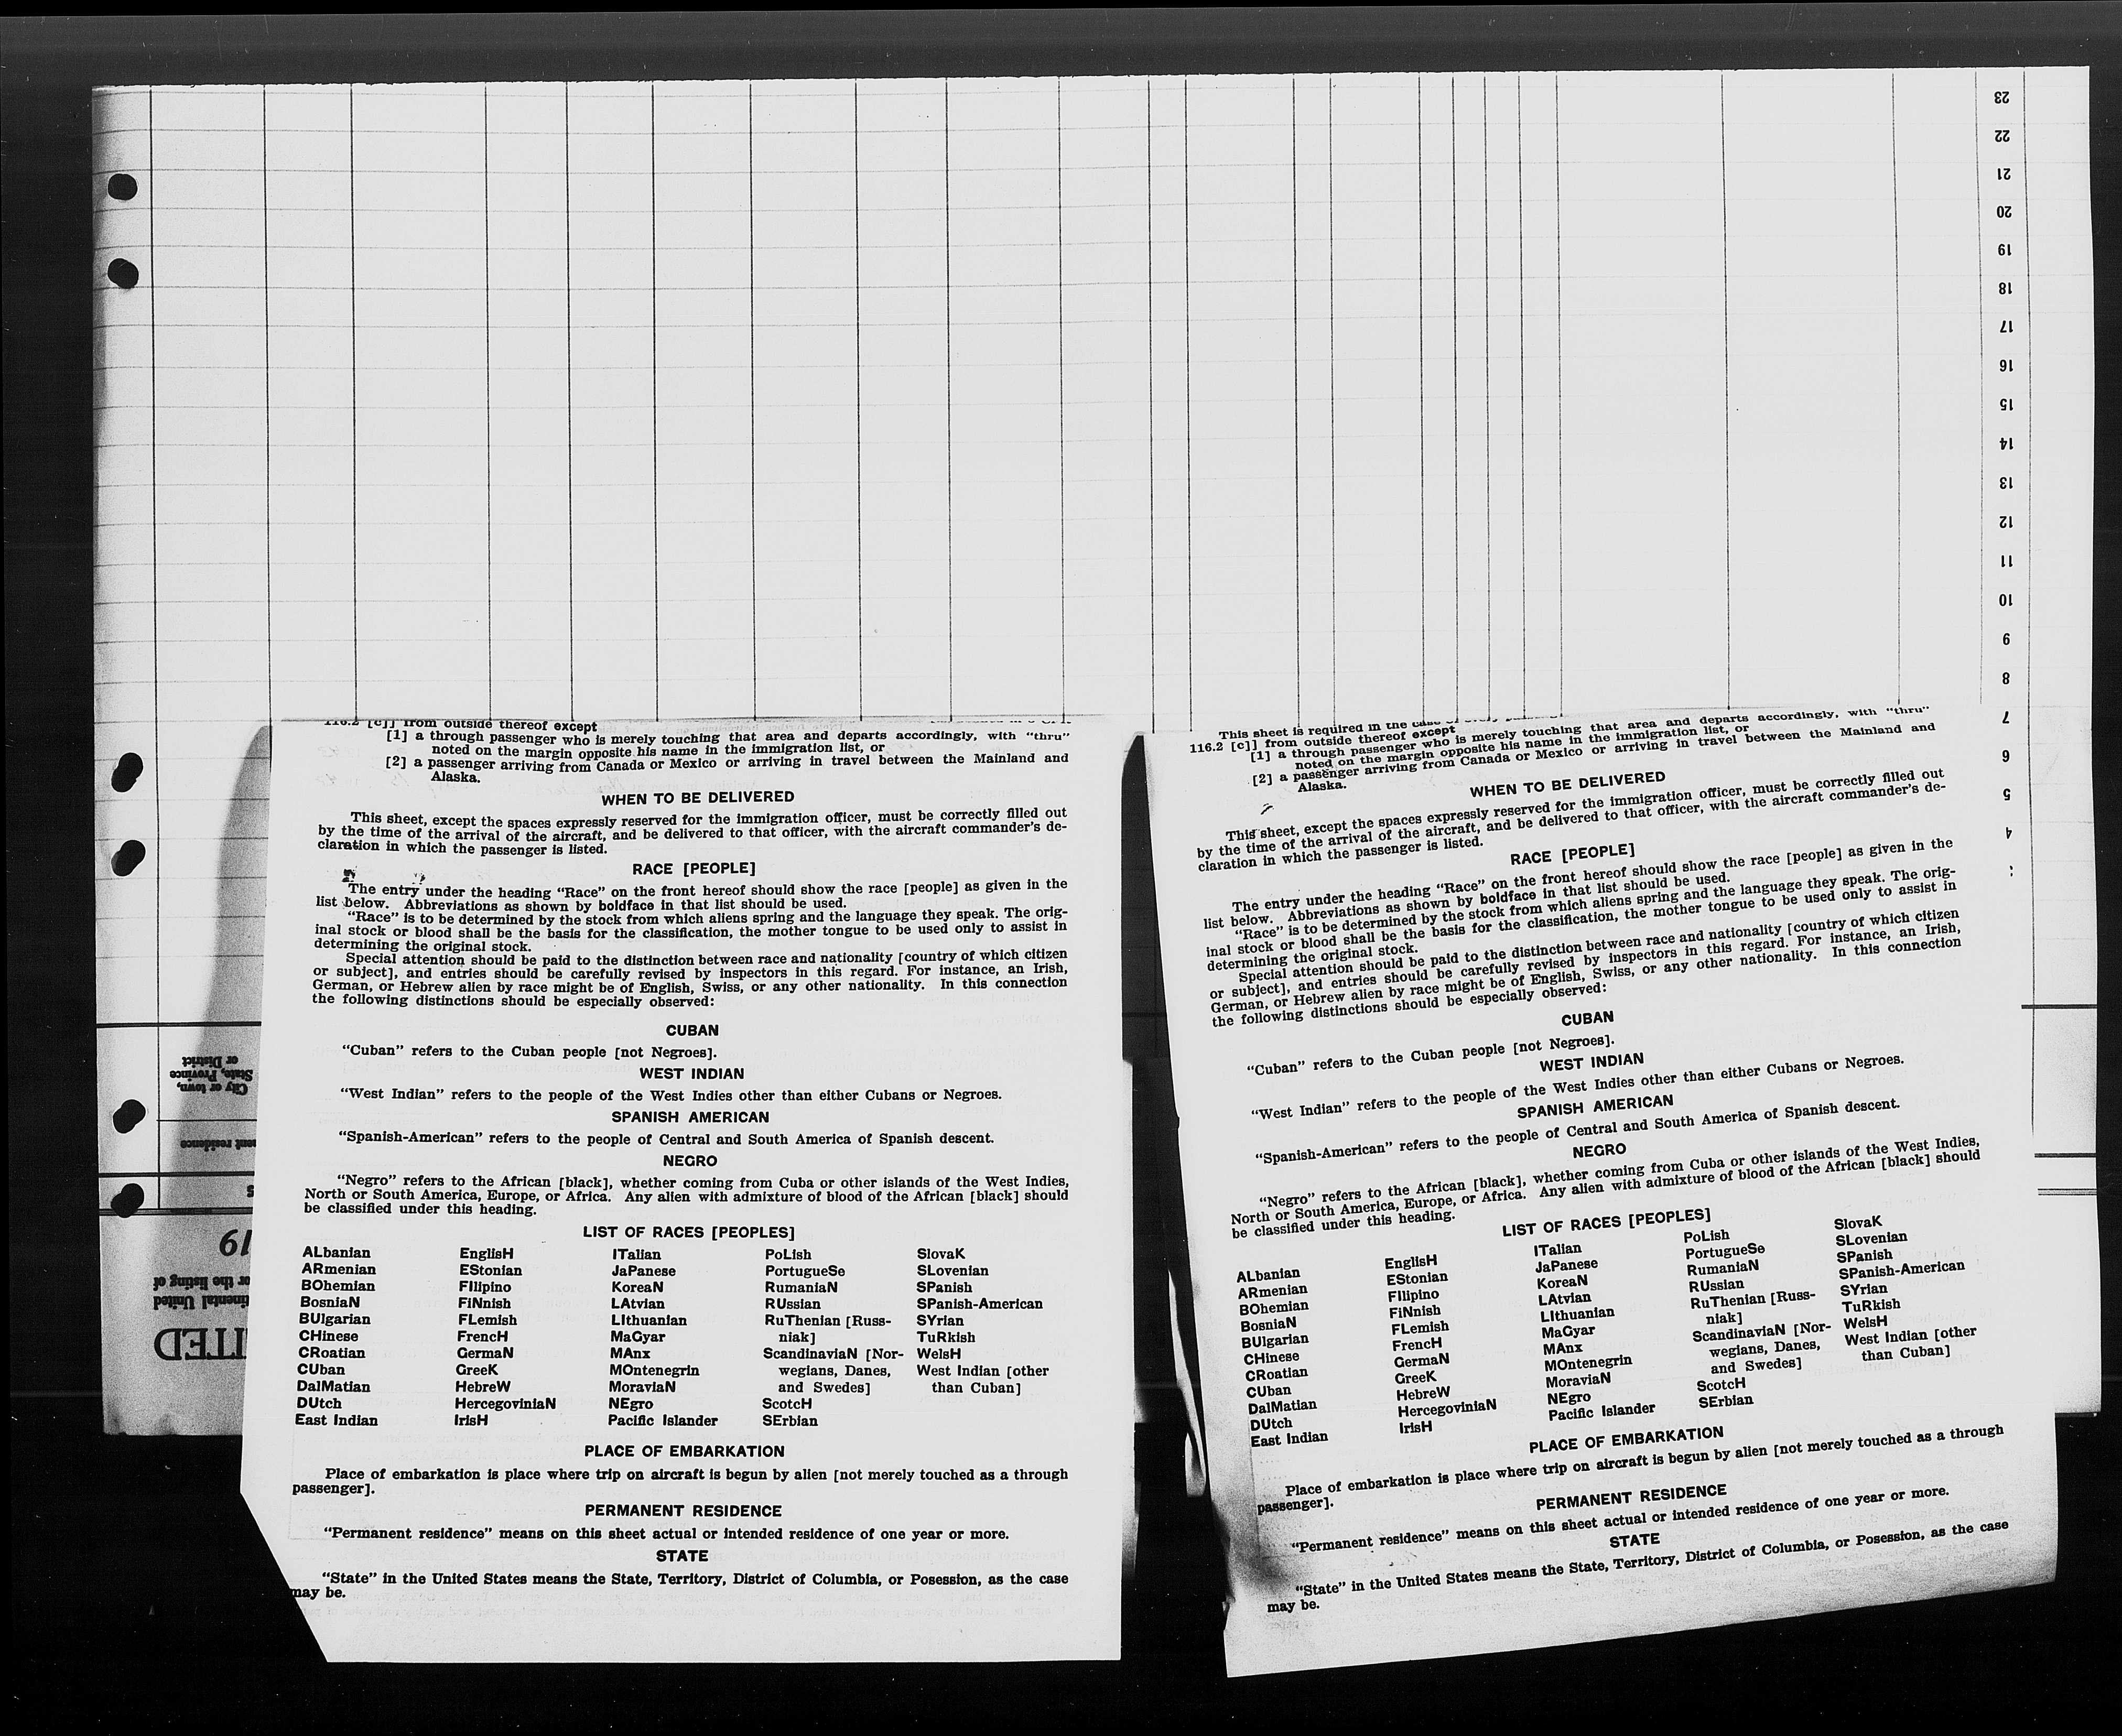 23
22
21
20
19
18
17
16
15
14
13
12
11
10
9
8
7
6
5
4
City or town,
State, Province
or District
residence
19
or the listing of
United
116.2 [c]] from outside thereof except
[1] a through passenger who is merely touching that area and departs accordingly, with “thru”
noted on the margin opposite his name in the immigration list, or
[2] a passenger arriving from Canada or Mexico or arriving in travel between the Mainland and
Alaska.
WHEN TO BE DELIVERED
This sheet, except the spaces expressly reserved for the immigration officer, must be correctly filled out
by the time of the arrival of the aircraft, and be delivered to that officer, with the aircraft commander’s de-
claration in which the passenger is listed.
RACE [PEOPLE]
The entry under the heading “Race” on the front hereof should show the race [people] as given in the
list below. Abbreviations as shown by boldface in that list should be used.
“Race” is to be determined by the stock from which aliens spring and the language they speak. The orig-
inal stock or blood shall be the basis for the classification, the mother tongue to be used only to assist in
determining the original stock.
Special attention should be paid to the distinction between race and nationality [country of which citizen
or subject], and entries should be carefully revised by inspectors in this regard. For instance, an Irish,
German, or Hebrew alien by race might be of English, Swiss, or any other nationality. In this connection
the following distinctions should be especially observed:
CUBAN
“Cuban” refers to the Cuban people [not Negroes].
WEST INDIAN
“West Indian” refers to the people of the West Indies other than either Cubans or Negroes.
SPANISH AMERICAN
“Spanish-American” refers to the people of Central and South America of Spanish descent.
NEGRO
“Negro” refers to the African [black], whether coming from Cuba or other islands of the West Indies,
North or South America, Europe, or Africa. Any alien with admixture of blood of the African [black] should
be classified under this heading.
LIST OF RACES [PEOPLES]
ALbanian
ARmenian
BOhemian
BosniaN
BUlgarian
CHinese
CRoatian
CUban
DalMatian
DUtch
East Indian
EnglisH
EStonian
FIlipino
FiNnish
FLemish
FrencH
GermaN
GreeK
HebreW
HercegoviniaN
IrisH
ITalian
JaPanese
KoreaN
LAtvian
LIthuanian
MaGyar
MAnx
MOntenegrin
MoraviaN
NEgro
Pacific Islander
PoLish
PortugueSe
RumaniaN
RUssian
RuThenian [Russ-
niak]
ScandinaviaN [Nor-
wegians, Danes,
and Swedes]
ScotcH
SErbian
SlovaK
SLovenian
SPanish
SPanish-American
SYrian
TuRkish
WelsH
West Indian [other
than Cuban]
PLACE OF EMBARKATION
Place of embarkation is place where trip on aircraft is begun by alien [not merely touched as a through
passenger].
PERMANENT RESIDENCE
“Permanent residence” means on this sheet actual or intended residence of one year or more.
STATE
“State” in the United States means the State, Territory, District of Columbia, or Posession, as the case
may be.
This sheet is required in the case
116.2 [c]] from outside thereof except
[1] a through passenger who is merely touching that area and departs accordingly, with “thru”
noted on the margin opposite his name in the immigration list, or
[2] a passenger arriving from Canada or Mexico or arriving in travel between the Mainland and
Alaska.
WHEN TO BE DELIVERED
This sheet, except the spaces expressly reserved for the immigration officer, must be correctly filled out
by the time of the arrival of the aircraft, and be delivered to that officer, with the aircraft commander’s de-
claration in which the passenger is listed.
RACE [PEOPLE]
The entry under the heading “Race” on the front hereof should show the race [people] as given in the
list below. Abbreviations as shown by boldface in that list should be used.
“Race” is to be determined by the stock from which aliens spring and the language they speak. The orig-
inal stock or blood shall be the basis for the classification, the mother tongue to be used only to assist in
determining the original stock.
Special attention should be paid to the distinction between race and nationality [country of which citizen
or subject], and entries should be carefully revised by inspectors in this regard. For instance, an Irish,
German, or Hebrew alien by race might be of English, Swiss, or any other nationality. In this connection
the following distinctions should be especially observed:
CUBAN
“Cuban” refers to the Cuban people [not Negroes].
WEST INDIAN
“West Indian” refers to the people of the West Indies other than either Cubans or Negroes.
SPANISH AMERICAN
“Spanish-American” refers to the people of Central and South America of Spanish descent.
NEGRO
“Negro” refers to the African [black], whether coming from Cuba or other islands of the West Indies,
North or South America, Europe, or Africa. Any alien with admixture of blood of the African [black] should
be classified under this heading.
LIST OF RACES [PEOPLES]
ALbanian
ARmenian
BOhemian
BosniaN
BUlgarian
CHinese
CRoatian
CUban
DalMatian
DUtch
East Indian
EnglisH
EStonian
FIlipino
FiNnish
FLemish
FrencH
GermaN
GreeK
HebreW
HercegoviniaN
IrisH
ITalian
JaPanese
KoreaN
LAtvian
LIthuanian
MaGyar
MAnx
MOntenegrin
MoraviaN
NEgro
Pacific Islander
PoLish
PortugueSe
RumaniaN
RUssian
RuThenian [Russ-
niak]
ScandinaviaN [Nor-
wegians, Danes,
and Swedes]
ScotcH
SErbian
SlovaK
SLovenian
SPanish
SPanish-American
SYrian
TuRkish
WelsH
West Indian [other
than Cuban]
PLACE OF EMBARKATION
Place of embarkation is place where trip on aircraft is begun by alien [not merely touched as a through
passenger].
PERMANENT RESIDENCE
“Permanent residence” means on this sheet actual or intended residence of one year or more.
STATE
“State” in the United States means the State, Territory, District of Columbia, or Posession, as the case
may be.